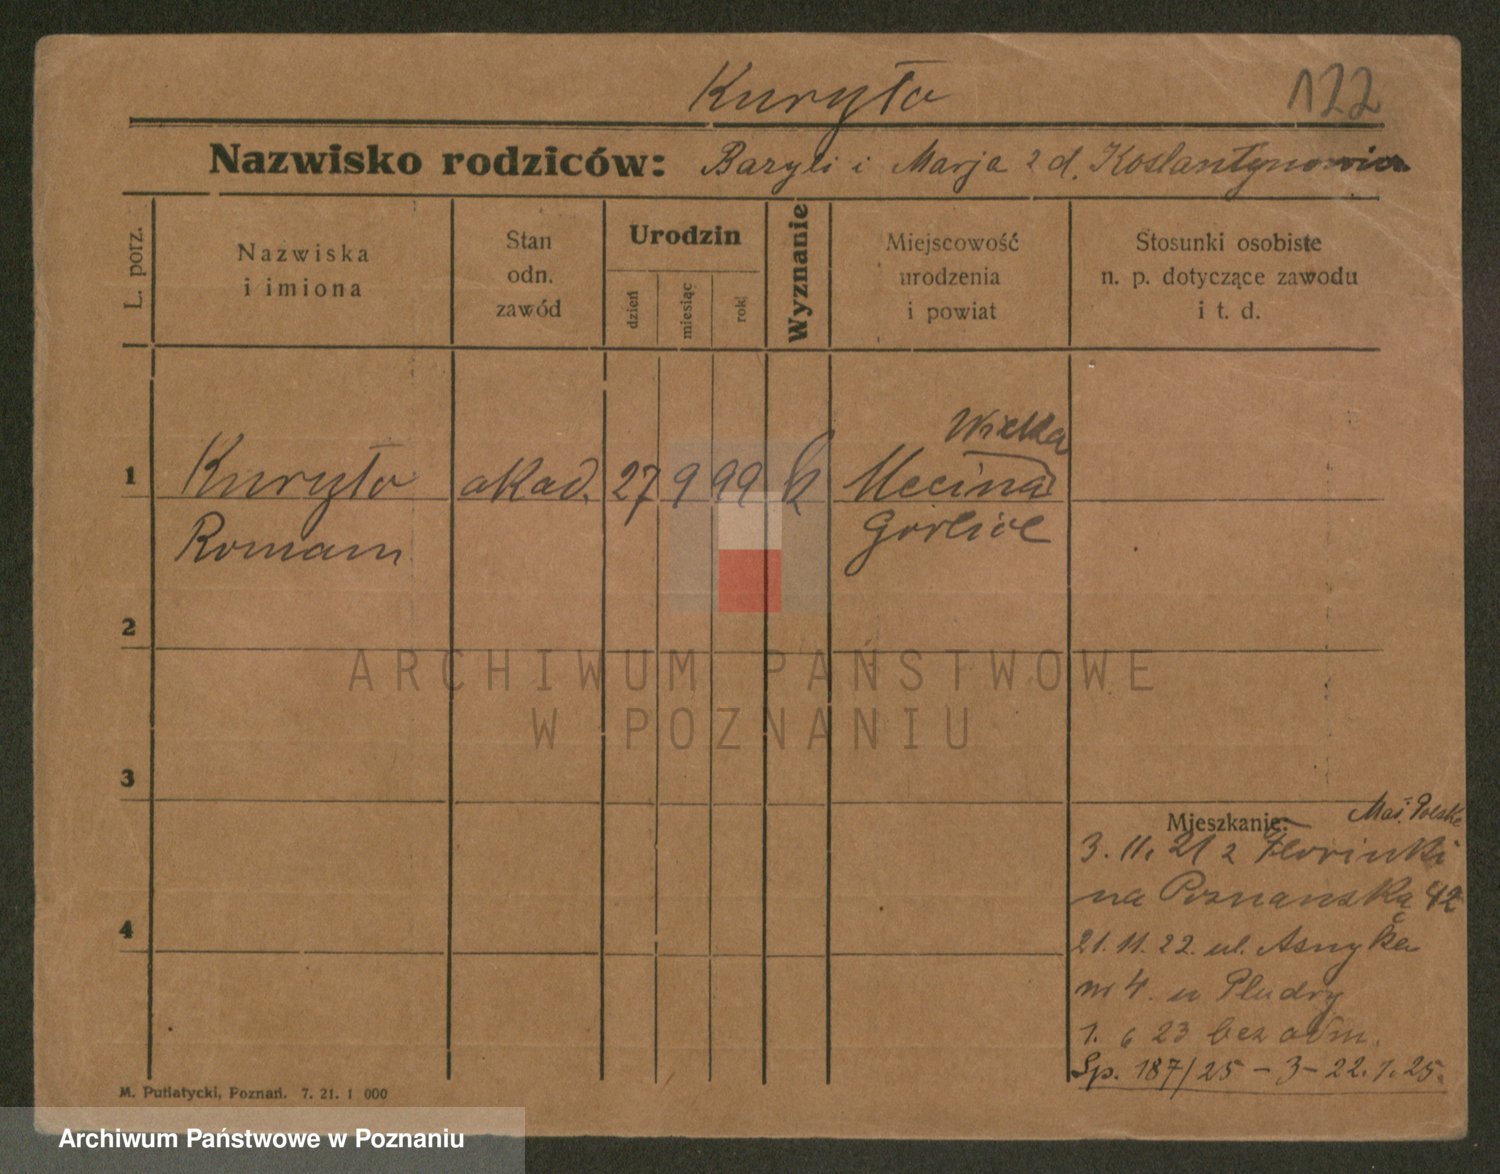 Kuryło
122
Nazwisko rodziców: Bazyli i Marja z d. Koslantynowicz
L. porz.
Nazwiska
i imiona
Stan
odn.
zawód
Urodzin
dzień
miesiąc
rok
Wyznanie
Miejscowość
urodzenia
i powiat
Stosunki osobiste
n. p. dotyczące zawodu
i t. d.
1
Kuryło
Roman
akad.
27
9
99
k
Wielka
Mecina
Gorlice
2
3
4
Mieszkanie:
Mał. Polska
3. 11. 21 z Florinki
na Poznańską 42
21. 11. 22. ul. Asnyka
nr 4. u Pludry
1. 6 23 bez odm.
Sp. 187/25 – 3 – 22. 1. 25.
M. Putiatycki, Poznań. 7. 21. 1 000
ARCHIWUM PAŃSTWOWE
W POZNANIU
Archiwum Państwowe w Poznaniu